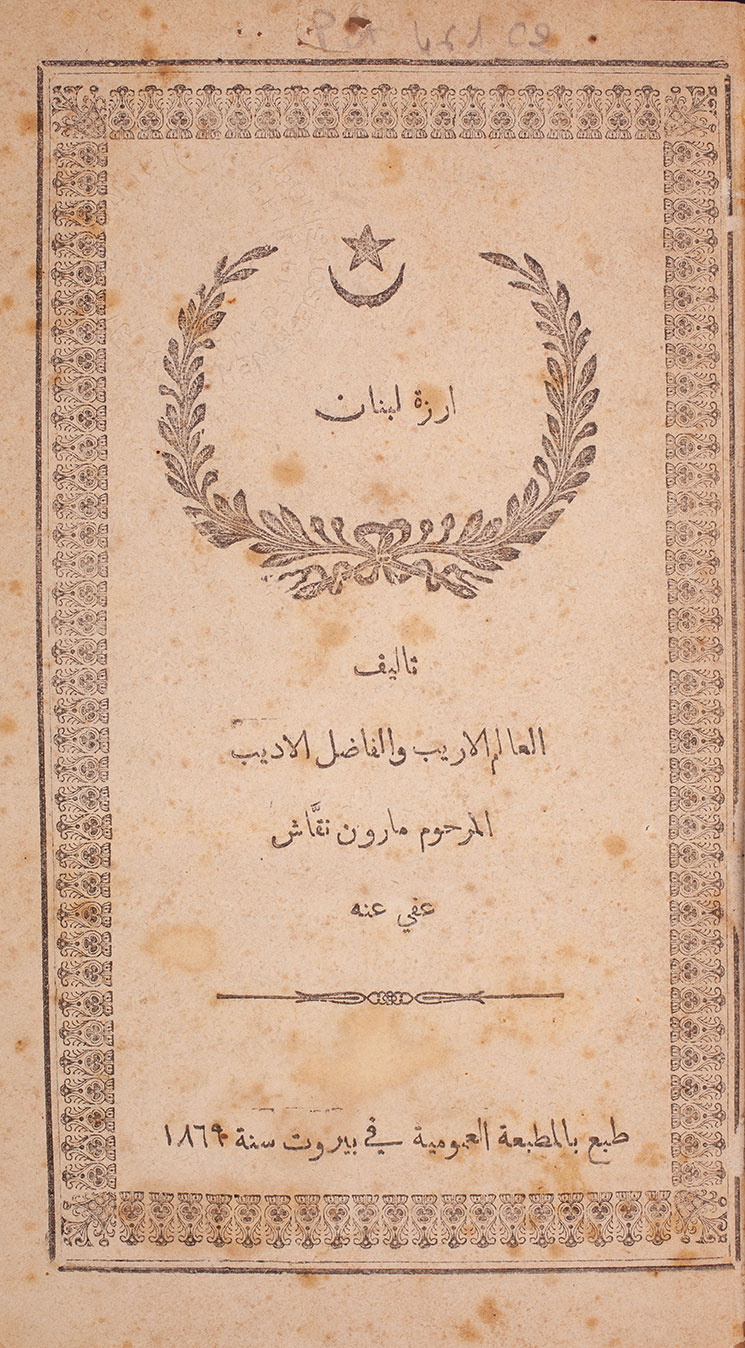 ارزة لبنان
تاليف
العالم الاريب والفاضل الاديب
المرحوم مارون نقَّاش
عفي عنه
طبع بالمطبعة العمومية في بيروت سنة ١٨٦٩